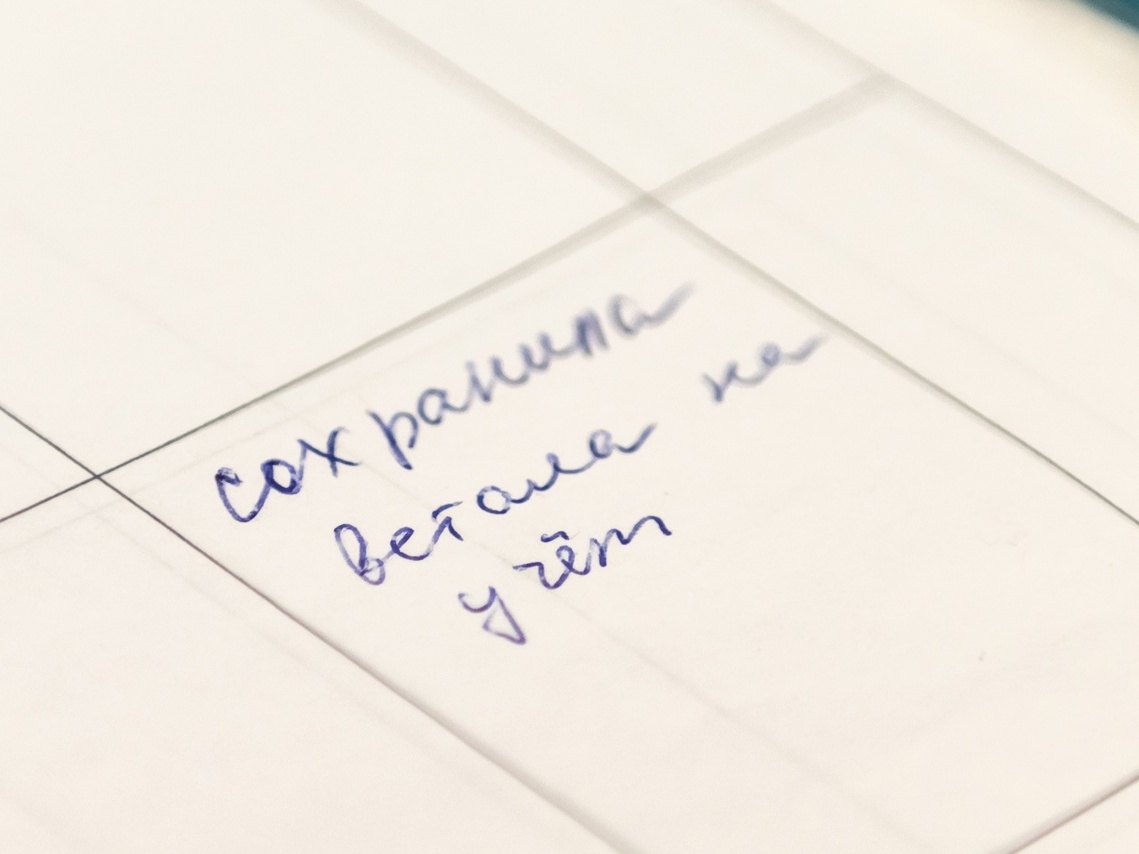 сохранила
встала на
учёт